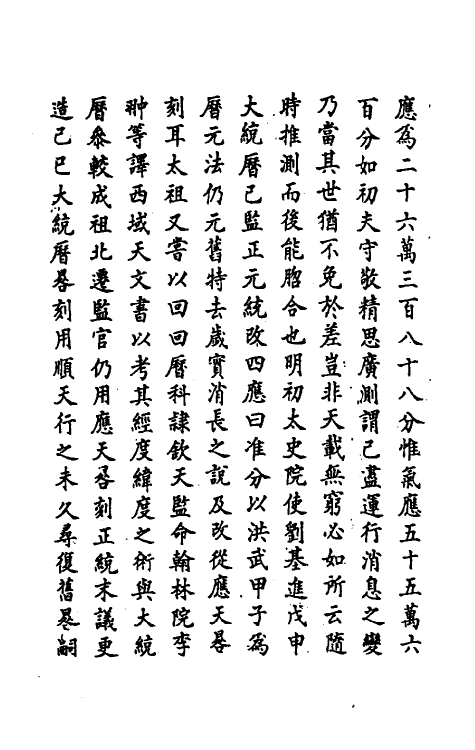 應為二十六萬三百八十八分惟氣應五十五萬六
百分如初夫守敬精思廣測謂已盡運行消息之變
乃當其世猶不免於差豈非天載無窮必如所云隨
時推測而後能脗合也明初太史院使劉基進戊申
大統曆已監正元統改四應曰准分以洪武甲子為
曆元法仍元舊特去歲實消長之說及改從應天晷
刻耳太祖又嘗以回回曆科隷欽天監命翰林院李
翀等譯西域天文書以考其經度緯度之術與大統
曆叅較成祖北遷監官仍用應天晷刻正統末議更
造己巳大統曆晷刻用順天行之未久尋復舊晷嗣